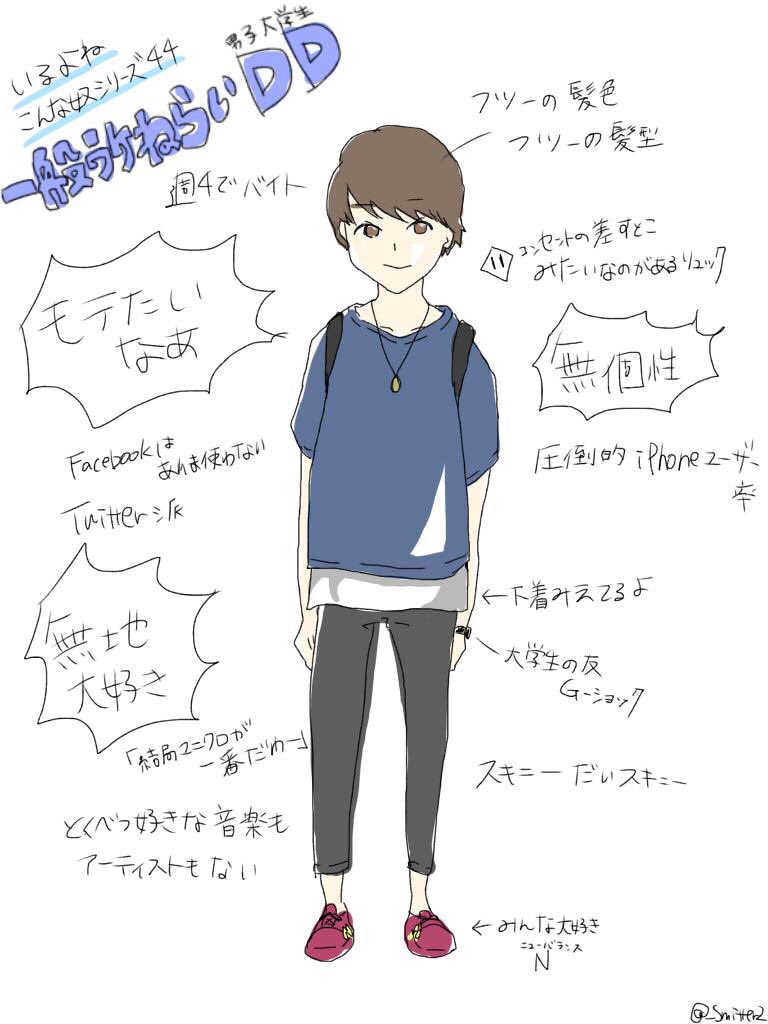 いるよね
こんな奴シリーズ44
男子大学生
一般ウケねらいDD
フツーの髪色
フツーの髪型
週4でバイト
コンセントの差すとこ
みたいなのがあるリュック
モテたい
なあ
無個性
Facebookは
あんま使わない
圧倒的iPhoneユーザー
率
Twitter派
←下着みえてるよ
無地
大好き
大学生の友
G-ショック
「結局ユニクロが
一番だわー」
スキニーだいスキニー
とくべつ好きな音楽も
アーティストもない
←みんな大好き
ニューバランス
N
@_Smitter2